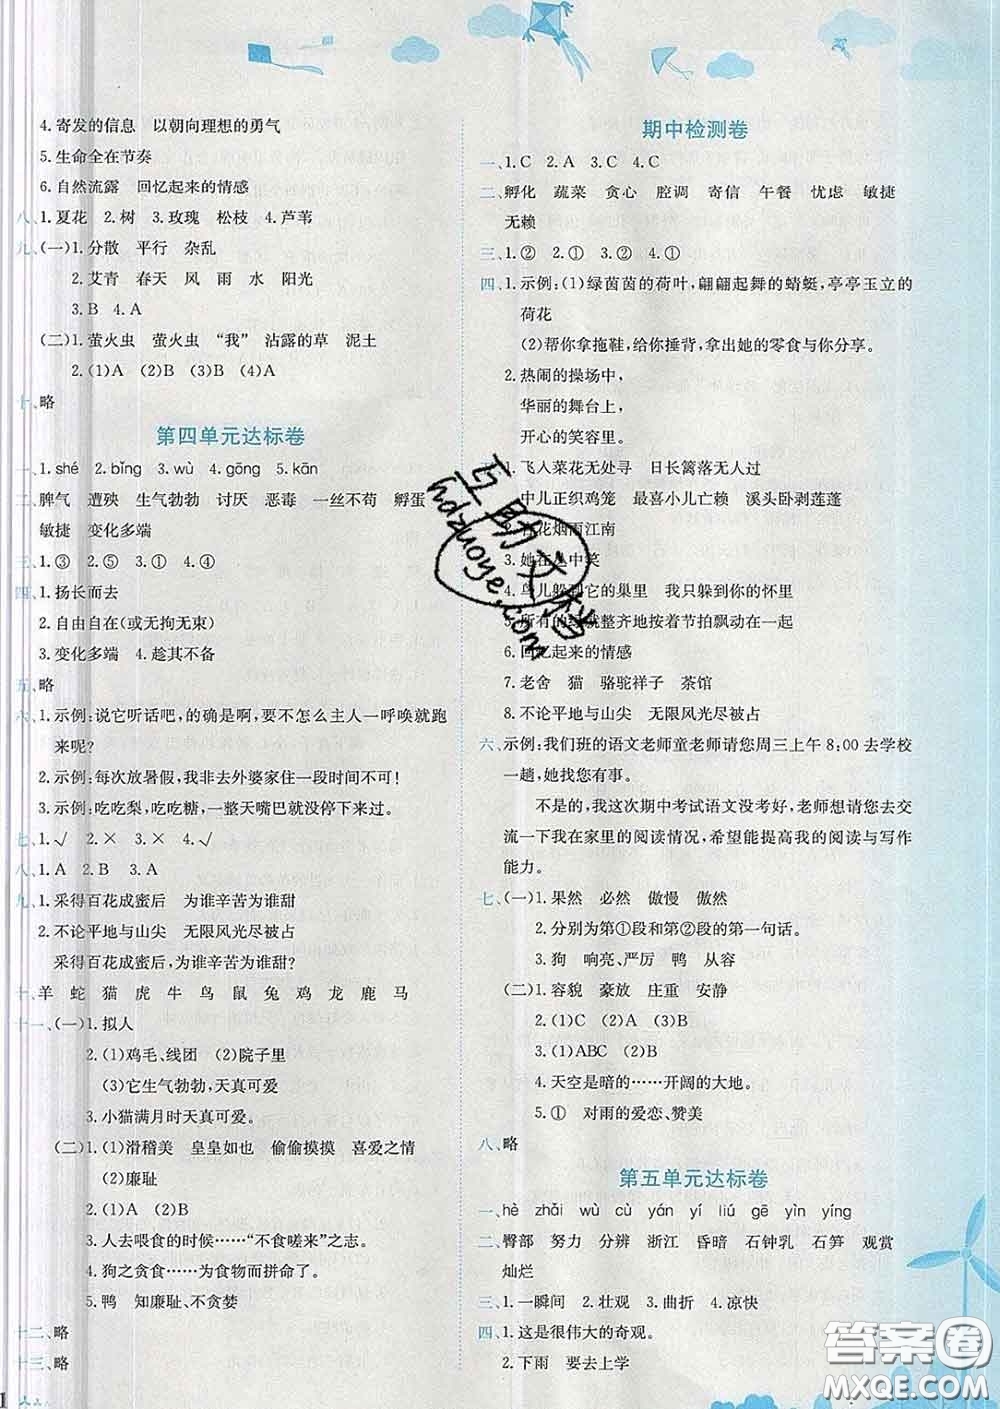 4.寄发的信息 以朝向理想的勇气
5.生命全在节奏
6.自然流露 回忆起来的情感
八、1.夏花 2.树 3.玫瑰 松枝 4.芦苇
九、(一)1.分散 平行 杂乱
2.艾青 春天 风 雨 水 阳光
3.B 4.A
(二)1.萤火虫 萤火虫 “我” 沾露的草 泥土
2.(1)A (2)B (3)B (4)A
十、略
第四单元达标卷
一、1.shé 2.bǐng 3.wù 4.gōng 5.kān
二、脾气 遭殃 生气勃勃 讨厌 恶毒 一丝不苟 孵蛋
敏捷 变化多端
三、1.③ 2.⑤ 3.① 4.② 5.④
四、1.扬长而去
2.自由自在(或无拘无束)
3.变化多端 4.趁其不备
五、略
六、1.示例:说它听话吧,的确是啊,要不怎么主人一呼唤就跑
来呢?
2.示例:每次放暑假,我非去外婆家住一段时间不可!
3.示例:吃吃梨,吃吃糖,一整天嘴巴没停下来过。
七、1.√ 2.× 3.× 4.√
八、1.A 2.B 3.A
九、1.采得百花成蜜后 为谁辛苦为谁甜
2.不论平地与山尖 无限风光尽被占
采得百花成蜜后,为谁辛苦为谁甜?
十、羊 蛇 猫 虎 牛 鸟 鼠 兔 鸡 龙 鹿 马
十一、(一)1.拟人
2.(1)鸡毛、线团 (2)院子里
(3)它生气勃勃,天真可爱
3.小猫满月时天真可爱。
(二)1.(1)滑稽美 皇皇如也 偷偷摸摸 喜爱之情
(2)廉耻
2.(1)A (2)B
3.人去喂食的时候……“不食嗟来”之志。
4.狗之贪食……为食物而拼命了。
5.鸭 知廉耻、不贪婪
十二、略
十三、略
期中检测卷
一、1.C 2.A 3.C 4.C
二、孵化 蔬菜 贪心 腔调 寄信 午餐 忧虑 敏捷
无赖
三、1.② 2.① 3.② 4.①
四、1.示例:(1)绿茵茵的荷叶,翩翩起舞的蜻蜓,亭亭玉立的
荷花
(2)帮你拿拖鞋,给你捶背,拿出她的零食与你分享。
2.热闹的操场中,
华丽的舞台上,
开心的笑容里。
1.飞入菜花无处寻 日长篱落无人过
中儿正织鸡笼 最喜小儿亡赖 溪头卧剥莲蓬
2.杏花烟雨江南
3.她在丛中笑
4.鸟儿躲到它的巢里 我只躲到你的怀里
5.所有的绿就整齐地按着节拍飘动在一起
6.回忆起来的情感
7.老舍 猫 骆驼祥子 茶馆
8.不论平地与山尖 无限风光尽被占
六、示例:我们班的语文老师童老师请您周三上午8:00去学校
一趟,她找您有事。
不是的,我这次期中考试语文没考好,老师想请您去交
流一下我在家里的阅读情况,希望能提高我的阅读与写作
能力。
七、(一)1.果然 必然 傲慢 傲然
2.分别为第①段和第②段的第一句话。
3.狗 响亮、严厉 鸭 从容
(二)1.容貌 豪放 庄重 安静
2.(1)C (2)A (3)B
3.(1)ABC (2)B
4.天空是暗的……开阔的大地。
5.① 对雨的爱恋、赞美
八、略
第五单元达标卷
一、hè zhǎi wù cù yán yí liú gē yìn yíng
二、臀部 努力 分辨 浙江 昏暗 石钟乳 石笋 观赏
灿烂
三、1.一瞬间 2.壮观 3.曲折 4.凉快
四、1.这是很伟大的奇观。
2.下雨 要去上学
互助文档
hdzuoye.com
答案圈
MXQE.COM